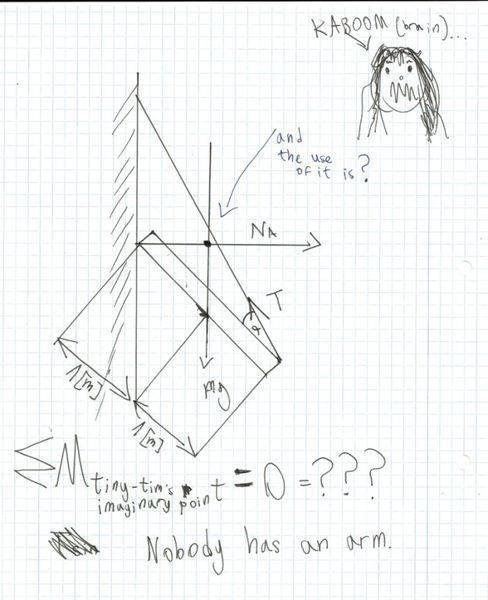 KABOOM (brain)...
and
the use
of it is?
NA
T
α
mg
1[m]
1[m]
ΣM tiny-tim's imaginary point = 0 = ???
Nobody has an arm.